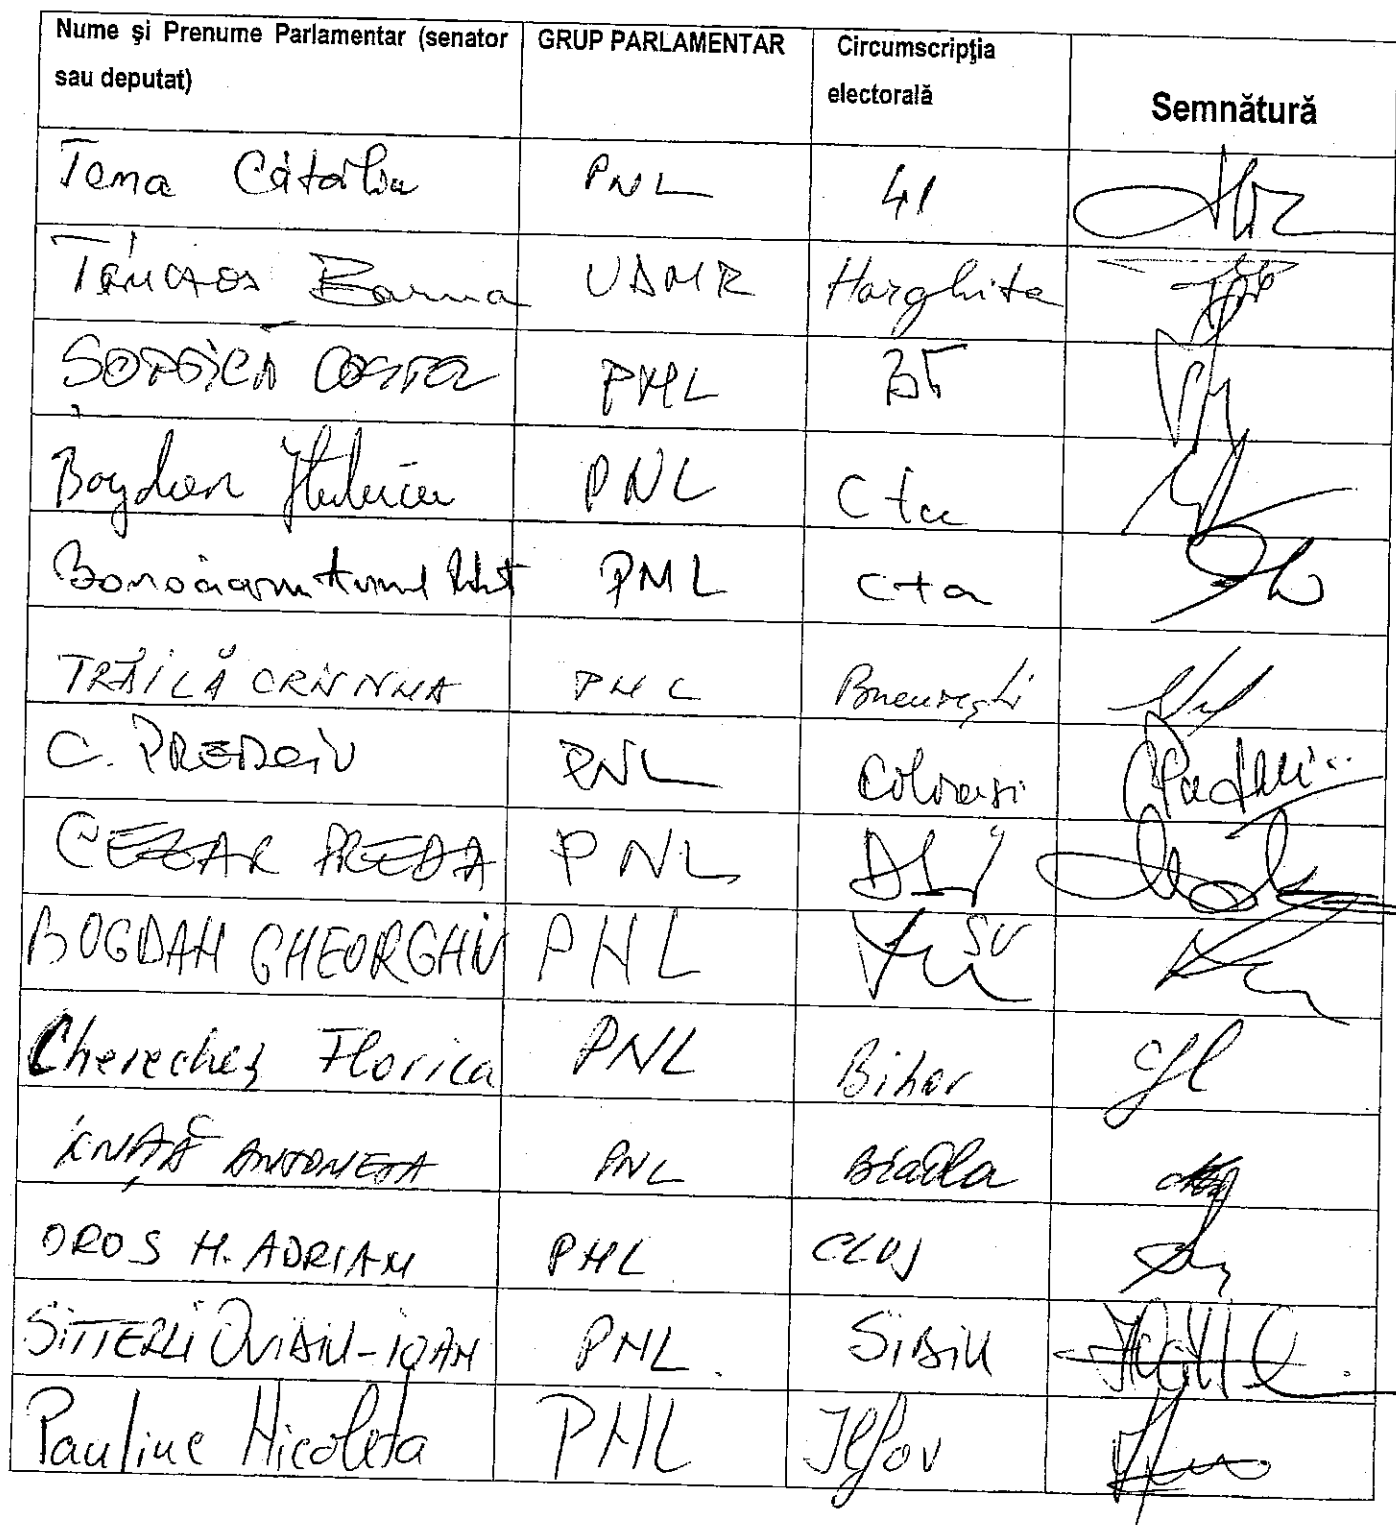 Nume și Prenume Parlamentar (senator sau deputat) GRUP PARLAMENTAR Circumscripţia electorală Semnătură
Toma Cătălin PNL 41
Tánczos Barna UDMR Harghita
ȘOPTICĂ COSTEL PNL BT
Bogdan Huțucă PNL Cta
PNL Cta
TRĂILĂ CRISTINA PNL București
C. PREDOIU PNL Călărași
CEZAR PREDA PNL
BOGDAN GHEORGHIU PNL SV
Cherecheș Florica PNL Bihor
IONIȚĂ ANTONETA PNL Brăila
OROS N. ADRIAN PNL CLUJ
SITTERLI OVIDIU-IOAN PNL SIBIU
Pauliuc Nicoleta PNL Ilfov